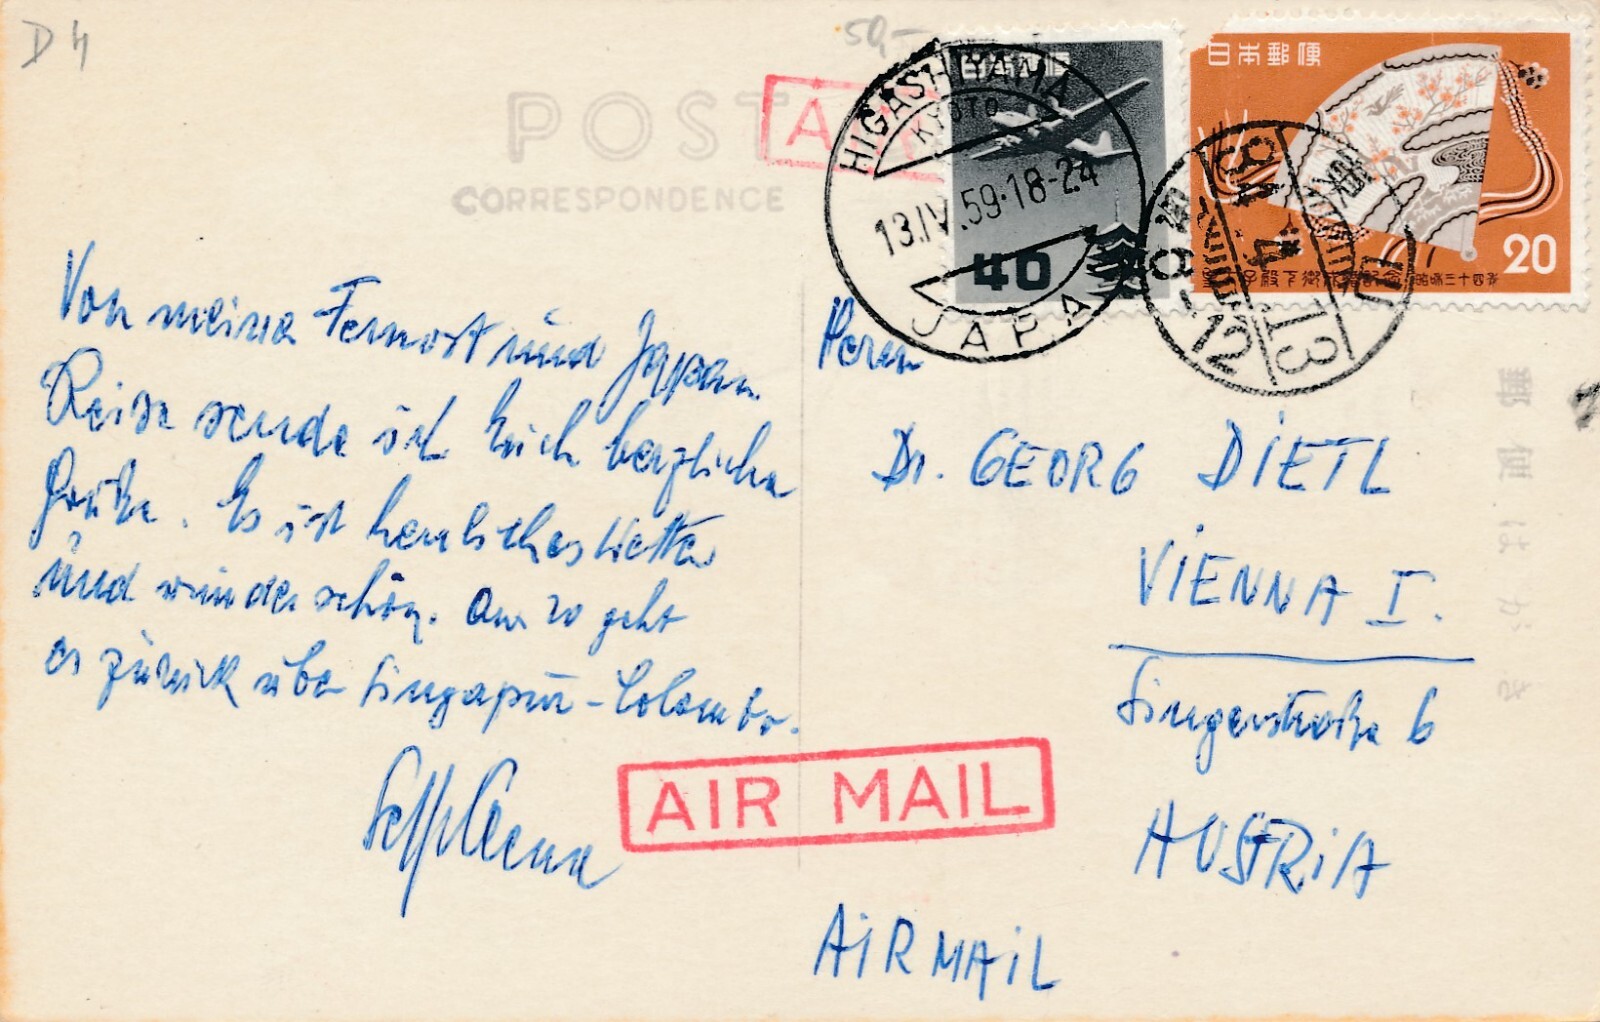 D 4
50,-
POST
CORRESPONDENCE
日本郵便
40
日本郵便
20
昭和三十四年
HIGASHIYAMA
KYOTO
13.IV.59.18-24
JAPAN
34
4
13
8-12
郵便はがき
Von meiner Fernost und Japan
Reise sende ich Euch herzliche
Grüße. Es ist herrliches Wetter
und wunderschön. Am 20 geht
es zurück über Singapur-Colombo.
Herrn
Dr. GEORG DIETL
VIENNA I.
Singerstraße 6
AUSTRIA
AIR MAIL
AIRMAIL